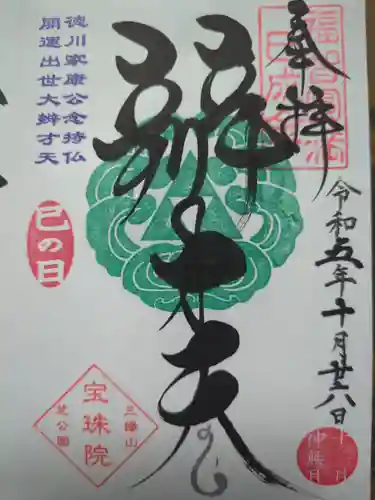 奉拝
辨才天
令和五年十月廿八日
徳川家康公念持仏
開運出世大辨才天
己の日
三縁山
宝珠院
芝公園